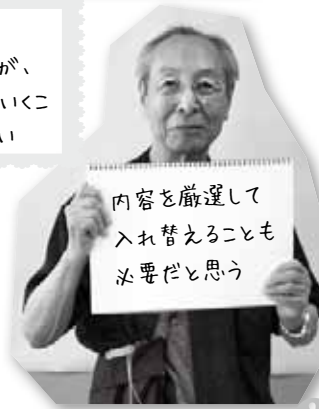 が、
いくこ
い
内容を厳選して
入れ替えることも
必要だと思う